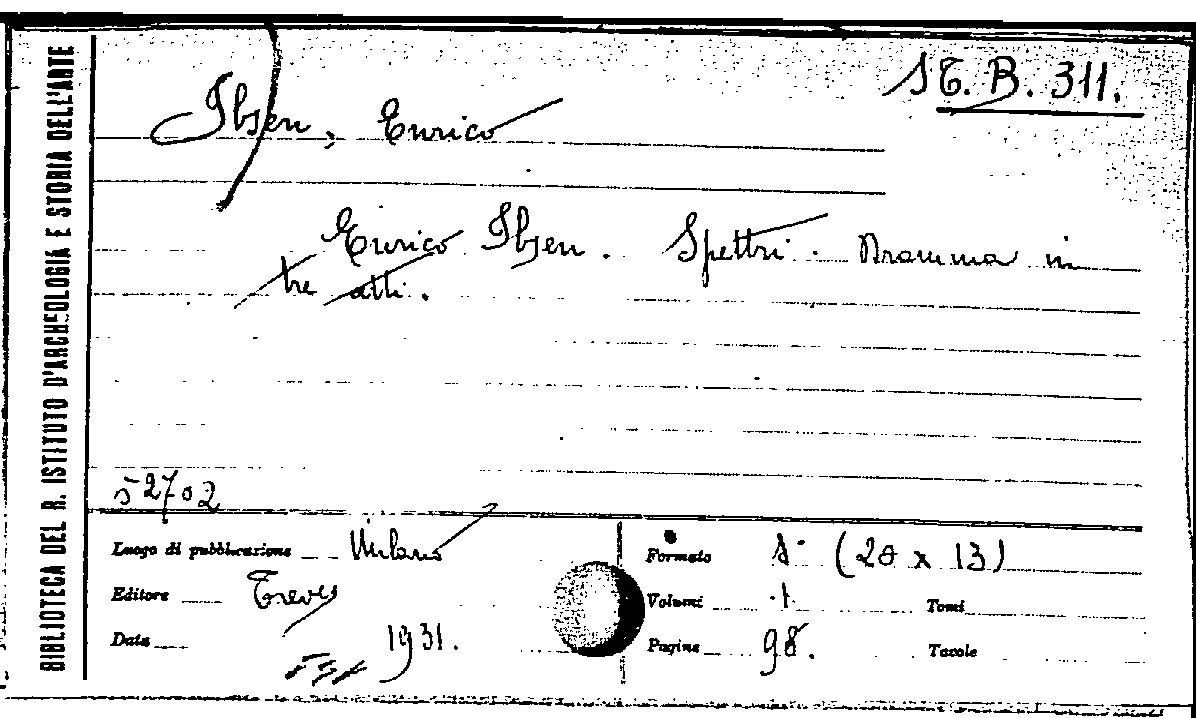 ST. B. 311.
Ibsen, Enrico
Enrico Ibsen. Spettri. Dramma in
tre atti.
52702
Luogo di pubblicazione Milano
Editore Treves
Data 1931.
Formato 8° (20 x 13)
Volumi 1. Tomi
Pagine 98. Tavole
BIBLIOTECA DEL R. ISTITUTO D'ARCHEOLOGIA E STORIA DELL'ARTE